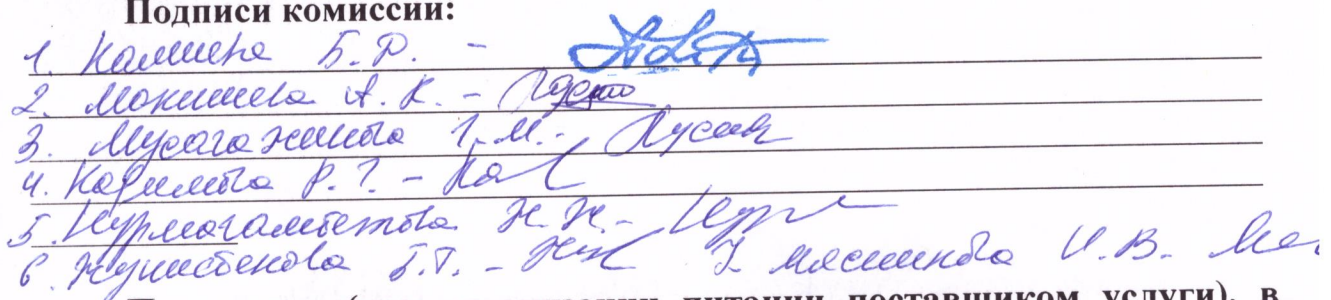 Подписи комиссии:
1. Калиева Б.Р. -
2. Мокишева А.К. -
3. Мусагажинова Г.М. -
4. Каримова Р.Г. -
5. Нурмагамбетова Ж.Ж. -
6. Жунисбекова Б.Т. - 7. Мясникова И.В.
питании поставщиком услуги), в